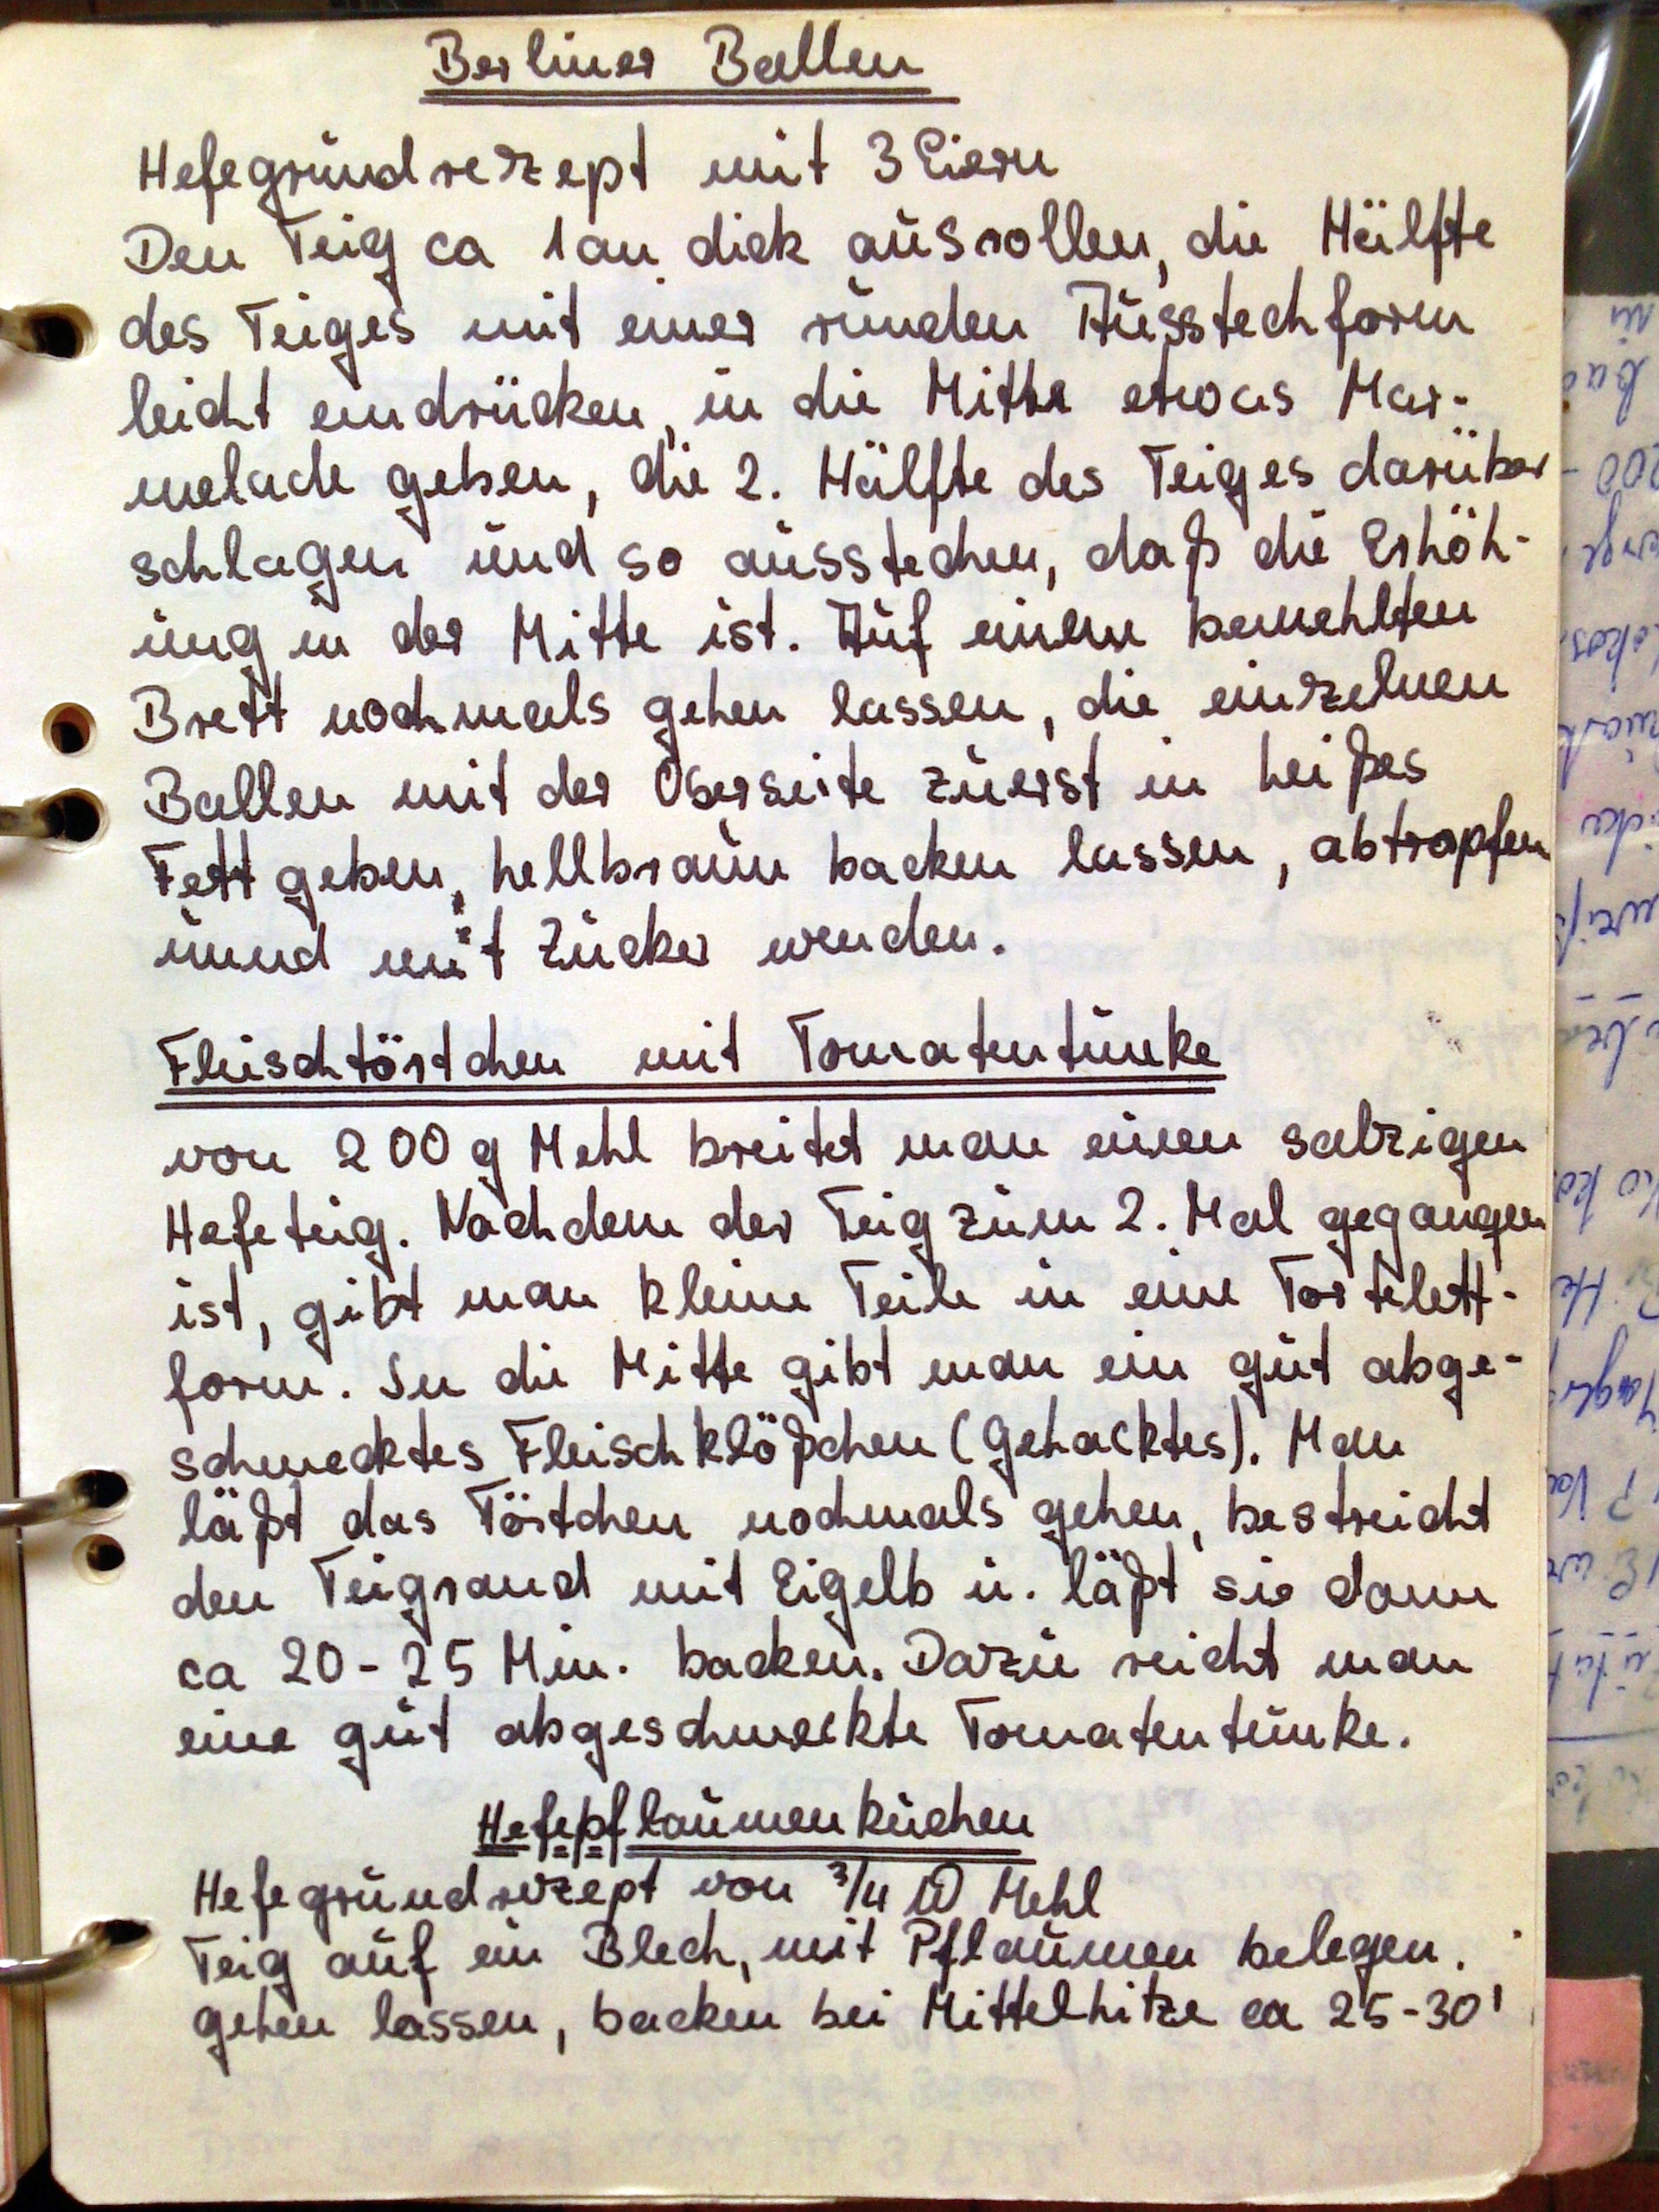 Berliner Ballen
Hefegrundrezept mit 3 Eiern
Den Teig ca 1 cm dick ausrollen, die Hälfte
des Teiges mit einer runden Ausstechform
leicht eindrücken, in die Mitte etwas Mar-
melade geben, die 2. Hälfte des Teiges darüber
schlagen und so ausstechen, daß die Erhöh-
ung in der Mitte ist. Auf einem bemehlten
Brett nochmals gehen lassen, die einzelnen
Ballen mit der Oberseite zuerst in heißes
Fett geben, hellbraun backen lassen, abtropfen
unnd mit Zucker wenden.
Fleischtörtchen mit Tomatentunke
von 200 g Mehl breitet man einen salzigen
Hefeteig. Nachdem der Teig zum 2. Mal gegangen
ist, gibt man kleine Teile in eine Tortelett-
form. In die Mitte gibt man ein gut abge-
schmecktes Fleischklößchen (Gehacktes). Man
läßt das Törtchen nochmals gehen, bestreicht
den Teigrand mit Eigelb u. läßt sie dann
ca 20 - 25 Min. backen. Dazu reicht man
eine gut abgeschmeckte Tomatentunke.
Hefepflaumenkuchen
Hefegrundrezept von 3/4 ℔ Mehl
Teig auf ein Blech, mit Pflaumen belegen.
gehen lassen, backen bei Mittelhitze ca 25-30'